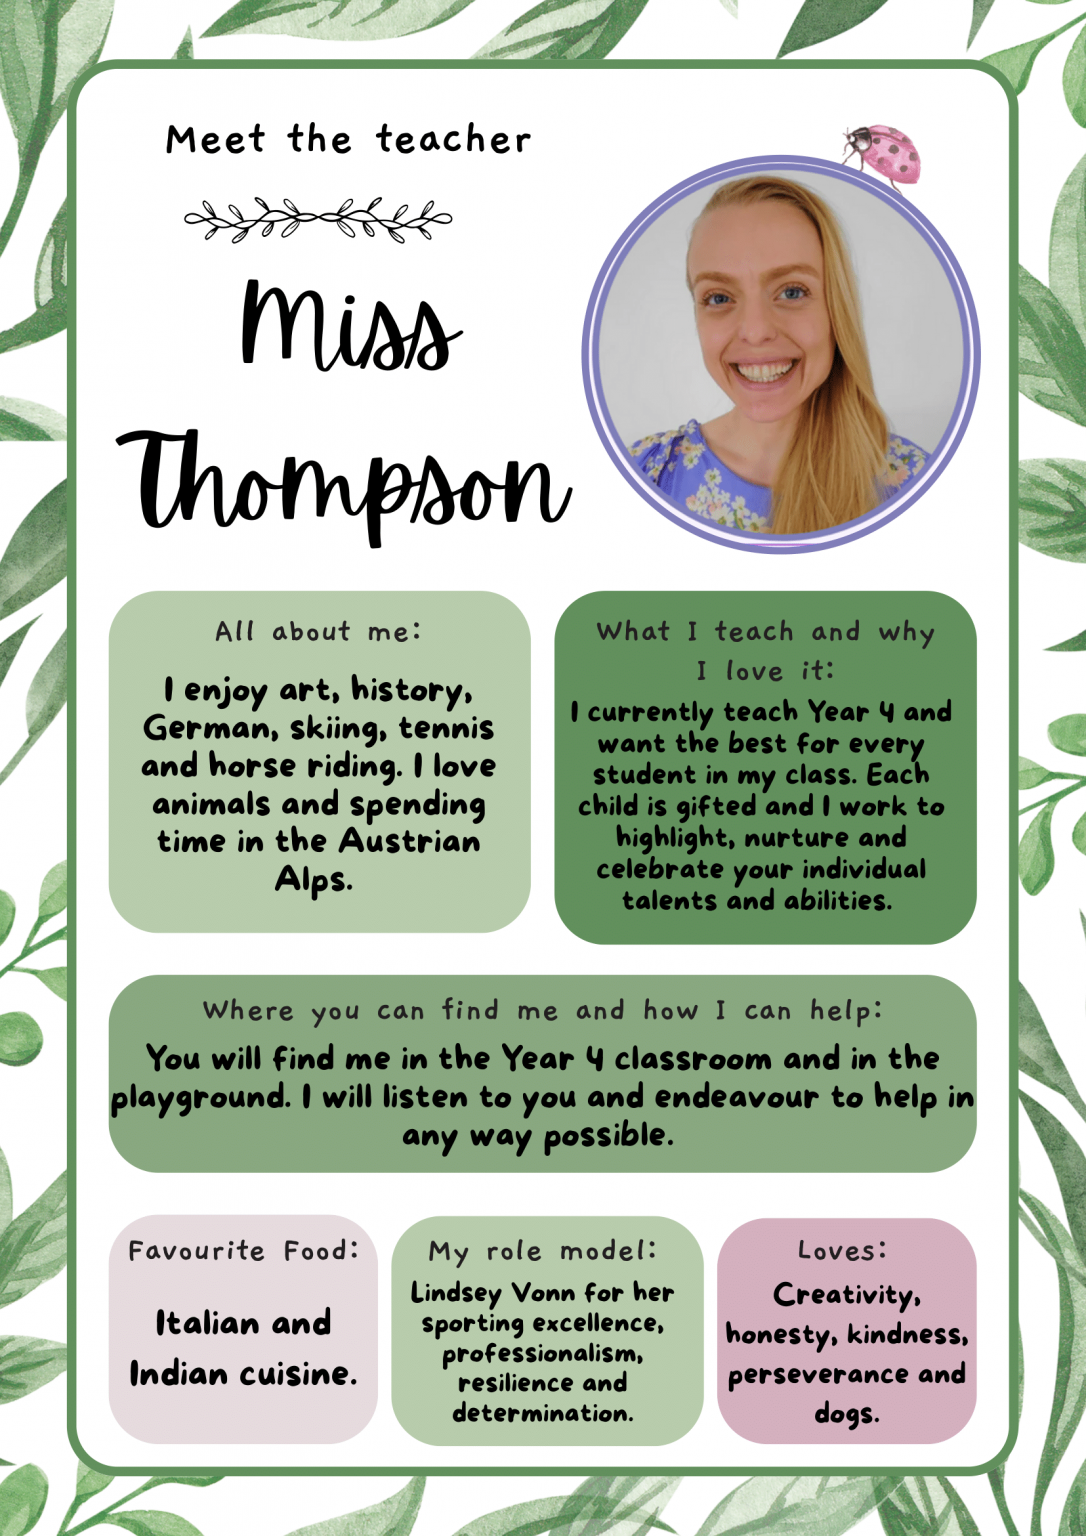 Meet the teacher
Miss
Thompson
All about me:
I enjoy art, history,
German, skiing, tennis
and horse riding. I love
animals and spending
time in the Austrian
Alps.
What I teach and why
I love it:
I currently teach Year 4 and
want the best for every
student in my class. Each
child is gifted and I work to
highlight, nurture and
celebrate your individual
talents and abilities.
Where you can find me and how I can help:
You will find me in the Year 4 classroom and in the
playground. I will listen to you and endeavour to help in
any way possible.
Favourite Food:
Italian and
Indian cuisine.
My role model:
Lindsey Vonn for her
sporting excellence,
professionalism,
resilience and
determination.
Loves:
Creativity,
honesty, kindness,
perseverance and
dogs.